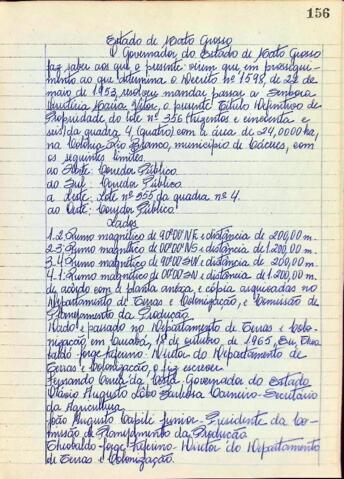 156
Estado de Mato Grosso
O Governador do Estado de Mato Grosso
faz saber aos que o presente virem que em prossegui-
mento ao que determina o Decreto nº 1598, de 22 de
maio de 1953, resolveu mandar passar a Senhora
Maria Vitor, o presente Título Definitivo de
Propriedade do lote nº 356 (trezentos e cincoenta e
seis) da quadra 4 (quatro) com a área de 24,0000 ha,
na Colônia Rio Branco, município de Cáceres, com
os seguintes limites.
ao Norte: Corredor Público
ao Sul: Corredor Público
a Leste: Lote nº 355 da quadra nº 4.
ao Oeste: Corredor Público.
Lados
1.2: Rumo magnético de 90º00'NE e distância de 200,00 m.
2.3: Rumo magnético de 00º00'NS e distância de 1.200,00 m.
3.4: Rumo magnético de 90º00'SW e distância de 200,00 m.
4.1: Rumo magnético de 00º00'SN e distância de 1.200,00 m.
de acordo com a planta anexa, e cópia arquivadas no
Departamento de Terras e Colonização, e Comissão de
Planejamento da Produção
Dado e passado no Departamento de Terras e Colo-
nização, em Cuiabá, 18 de outubro, de 1965, Eu, Theo
baldo Jorge Diretor do Departamento de
Terras e Colonização, o fiz escrever
Fernando Corrêa da Costa Governador do Estado
Otávio Augusto Lobo Barbosa Carneiro Secretário
da Agricultura
João Augusto Capilé Junior Presidente da Co-
missão de Planejamento da Produção
Theobaldo Jorge Diretor do Departamento
de Terras e Colonização.